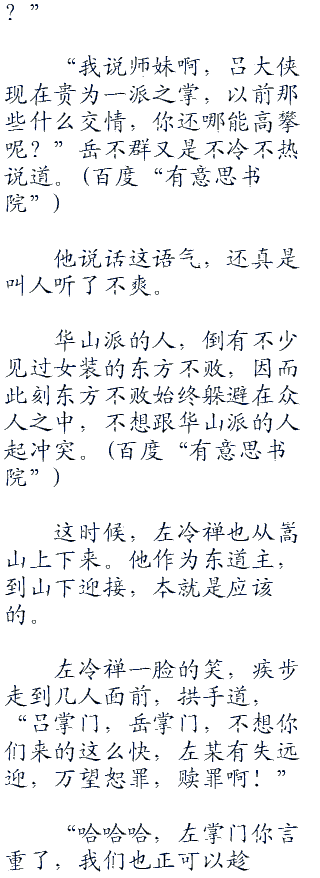 ？”
“我说师妹啊，吕大侠
现在贵为一派之掌，以前那
些什么交情，你还哪能高攀
呢？”岳不群又是不冷不热
说道。(百度“有意思书
院”)
他说话这语气，还真是
叫人听了不爽。
华山派的人，倒有不少
见过女装的东方不败，因而
此刻东方不败始终躲避在众
人之中，不想跟华山派的人
起冲突。(百度“有意思书
院”)
这时候，左冷禅也从嵩
山上下来。他作为东道主，
到山下迎接，本就是应该
的。
左冷禅一脸的笑，疾步
走到几人面前，拱手道，
“吕掌门，岳掌门，不想你
们来的这么快，左某有失远
迎，万望恕罪，赎罪啊！”
“哈哈哈，左掌门你言
重了，我们也正可以趁